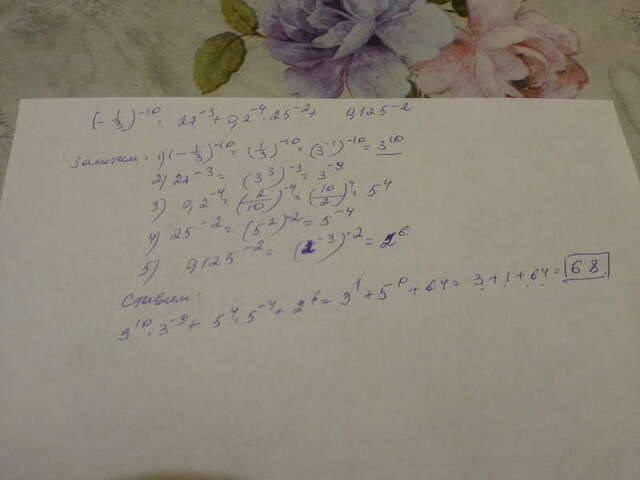 (-1/3)^-10 · 27^-3 + 0,2^-4 · 25^-2 + 0,125^-2
Заметим: 1) (-1/3)^-10 = (1/3)^-10 = (3^-1)^-10 = 3^10
2) 27^-3 = (3^3)^-3 = 3^-9
3) 0,2^-4 = (2/10)^-4 = (10/2)^4 = 5^4
4) 25^-2 = (5^2)^-2 = 5^-4
5) 0,125^-2 = (2^-3)^-2 = 2^6
Ставим:
3^10 · 3^-9 + 5^4 · 5^-4 + 2^6 = 3^1 + 5^0 + 64 = 3 + 1 + 64 = 68